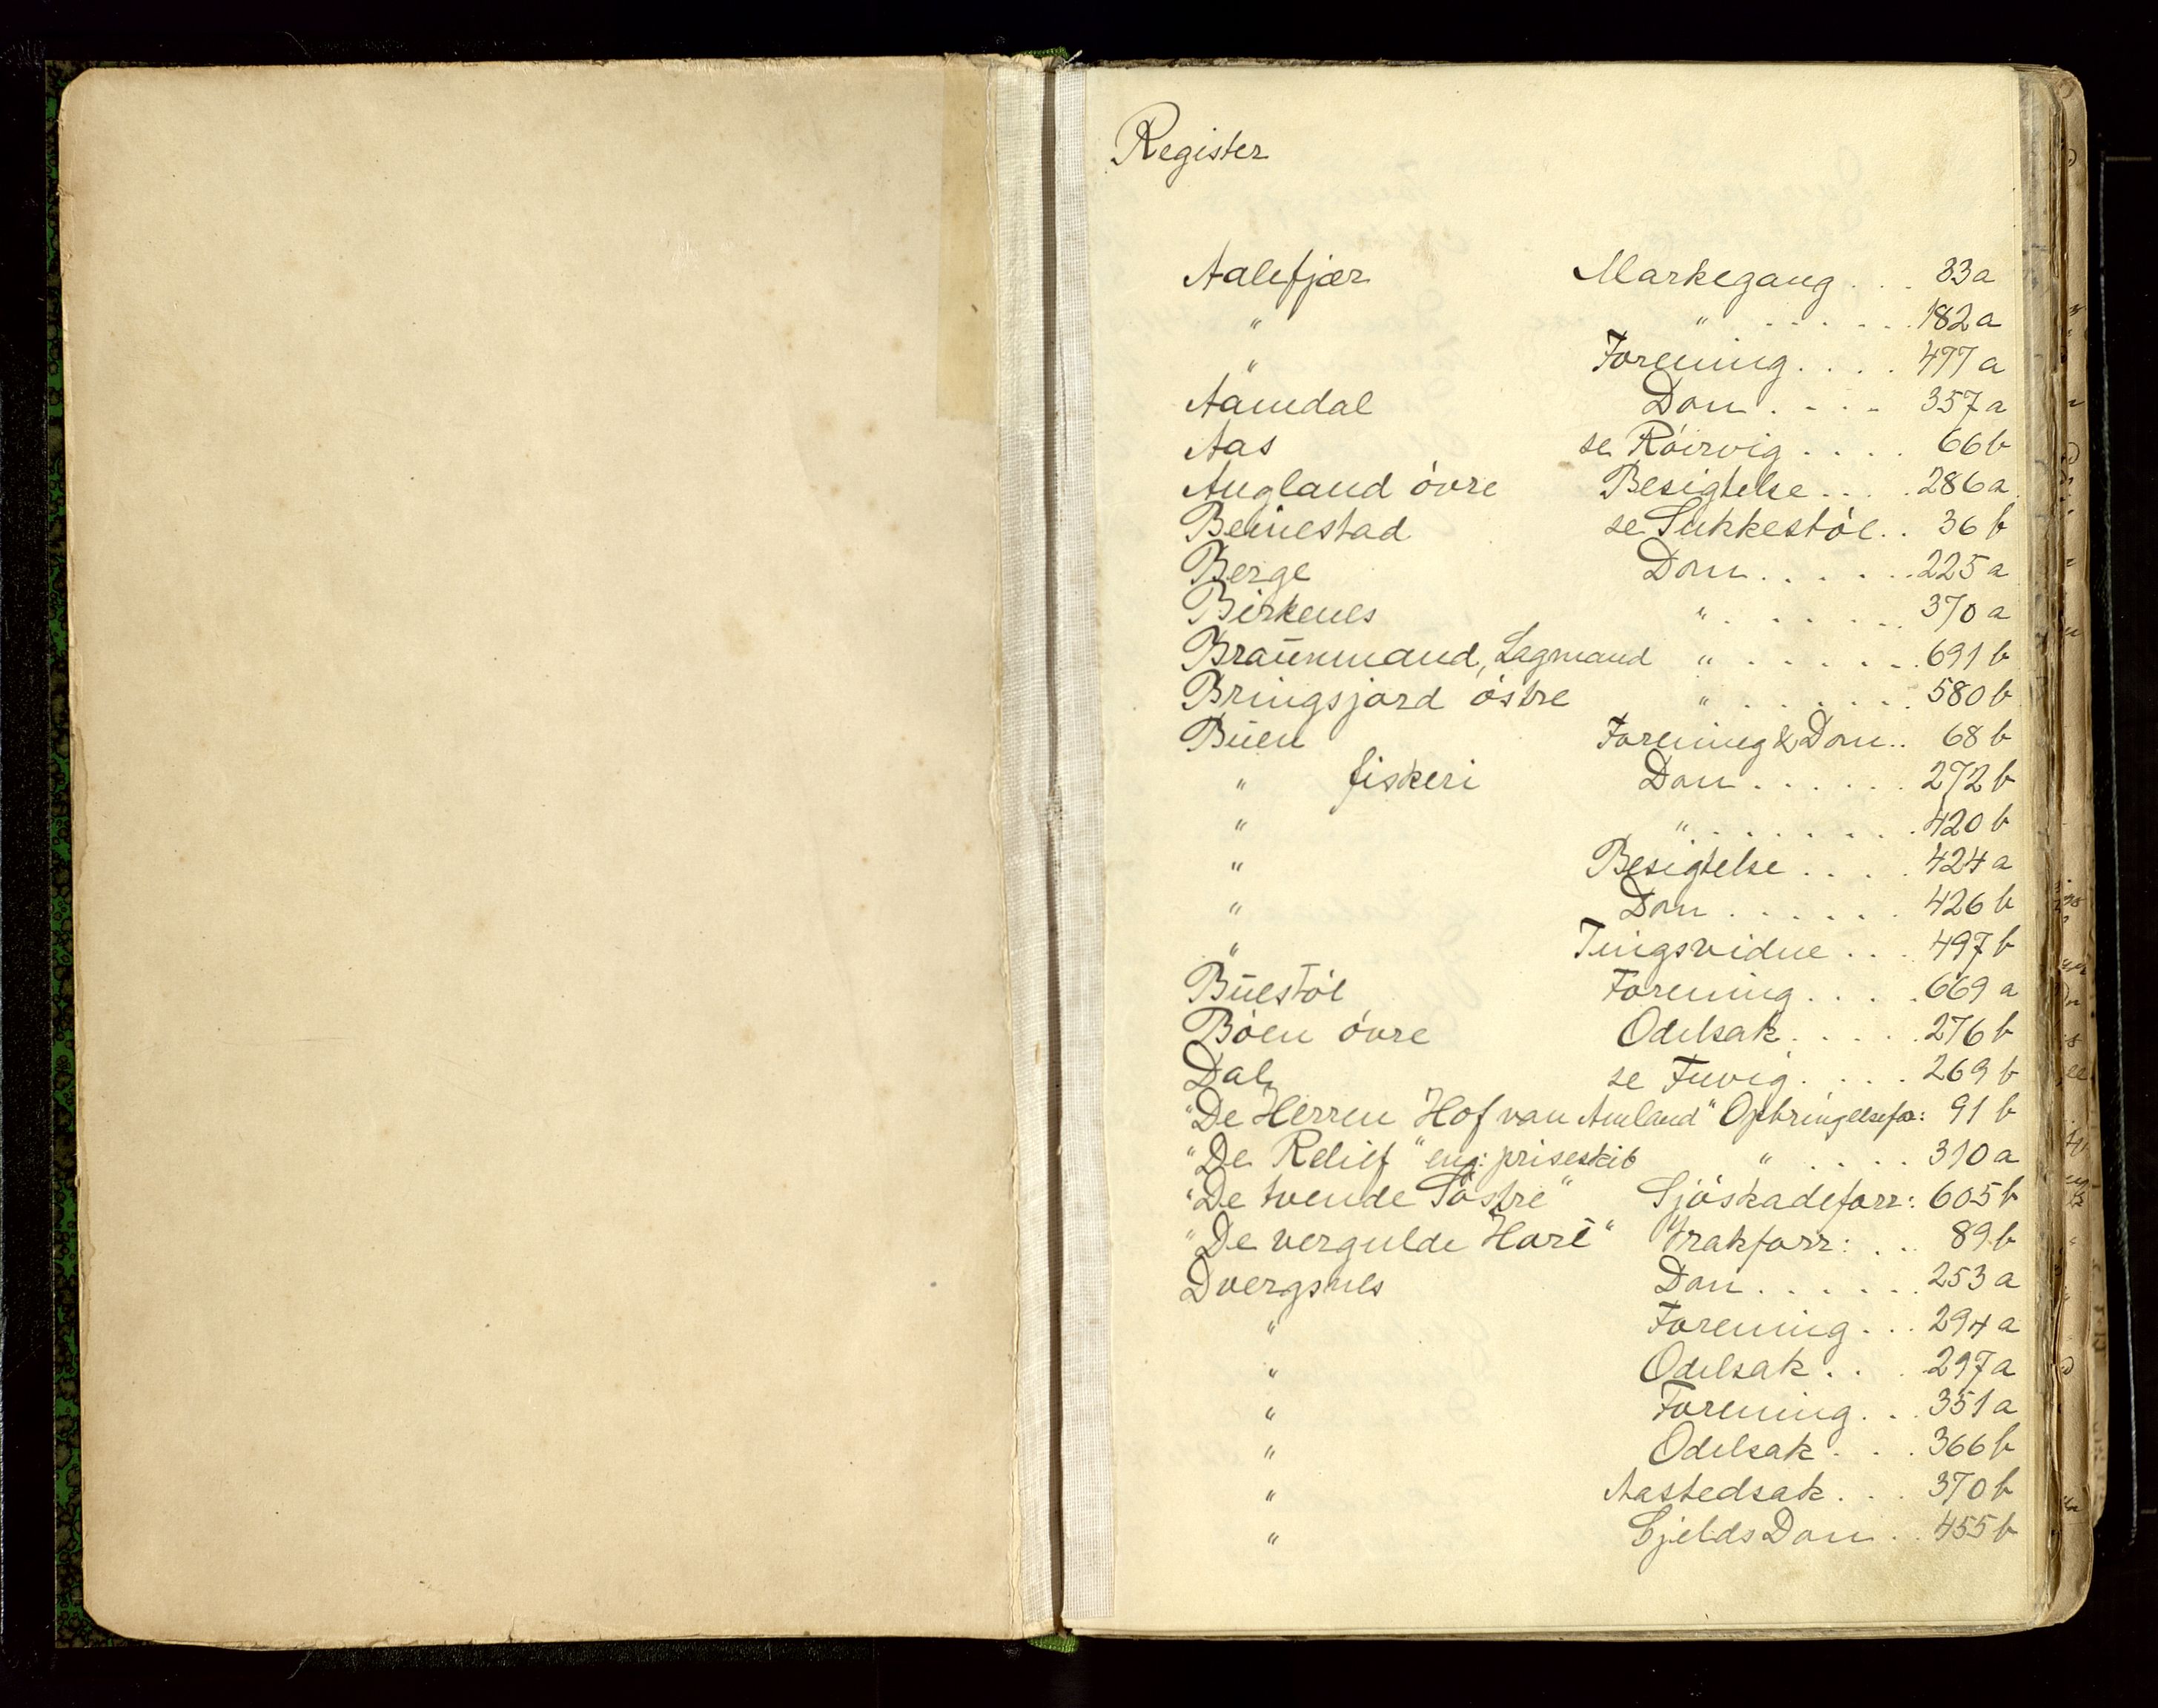 Register
Aalefjær Markegang . . . 33a
" " . . . . . . 182a
" Forening . . . . 477a
Aamdal Dom . . . . 357a
Aas se Röirvig . . . . 66b
Augland övre Besigtelse . . . . 286a
Beinestad se Sukkestöl . . 36b
Berge Dom . . . . . . 225a
Birkenes " . . . . . . . 370a
Braünmand, Lagmand " . . . . . . 691b
Bringsjord östre " . . . . . . . 580b
Büen Forening & Dom . . 68b
" fiskeri Dom . . . . . . 272b
" " . . . . . . . . 420b
" Besigtelse . . . . 424a
" Dom . . . . . . 426b
" Tingsvidne . . . 497b
Büestöl Forening . . . . 669a
Böen övre Odelsak . . . . . 276b
Dal se Tuvig . . . . 269b
"De Herren Hof van Amland" Opbringelsefor: 91b
"De Relief" eng: priseskib " . . . . 310a
"De tvende Söstre" Sjöskadeforr: 605b
"De vergulde Hare" Vrakforr: . . . 89b
Dvergsnes Dom . . . . . . 253a
" Forening . . . 294a
" Odelsak . . . 297a
" Forening . . . 351a
" Odelsak . . . 366b
" Aastedsak . . . 370b
" Gjelds Dom . . 455b